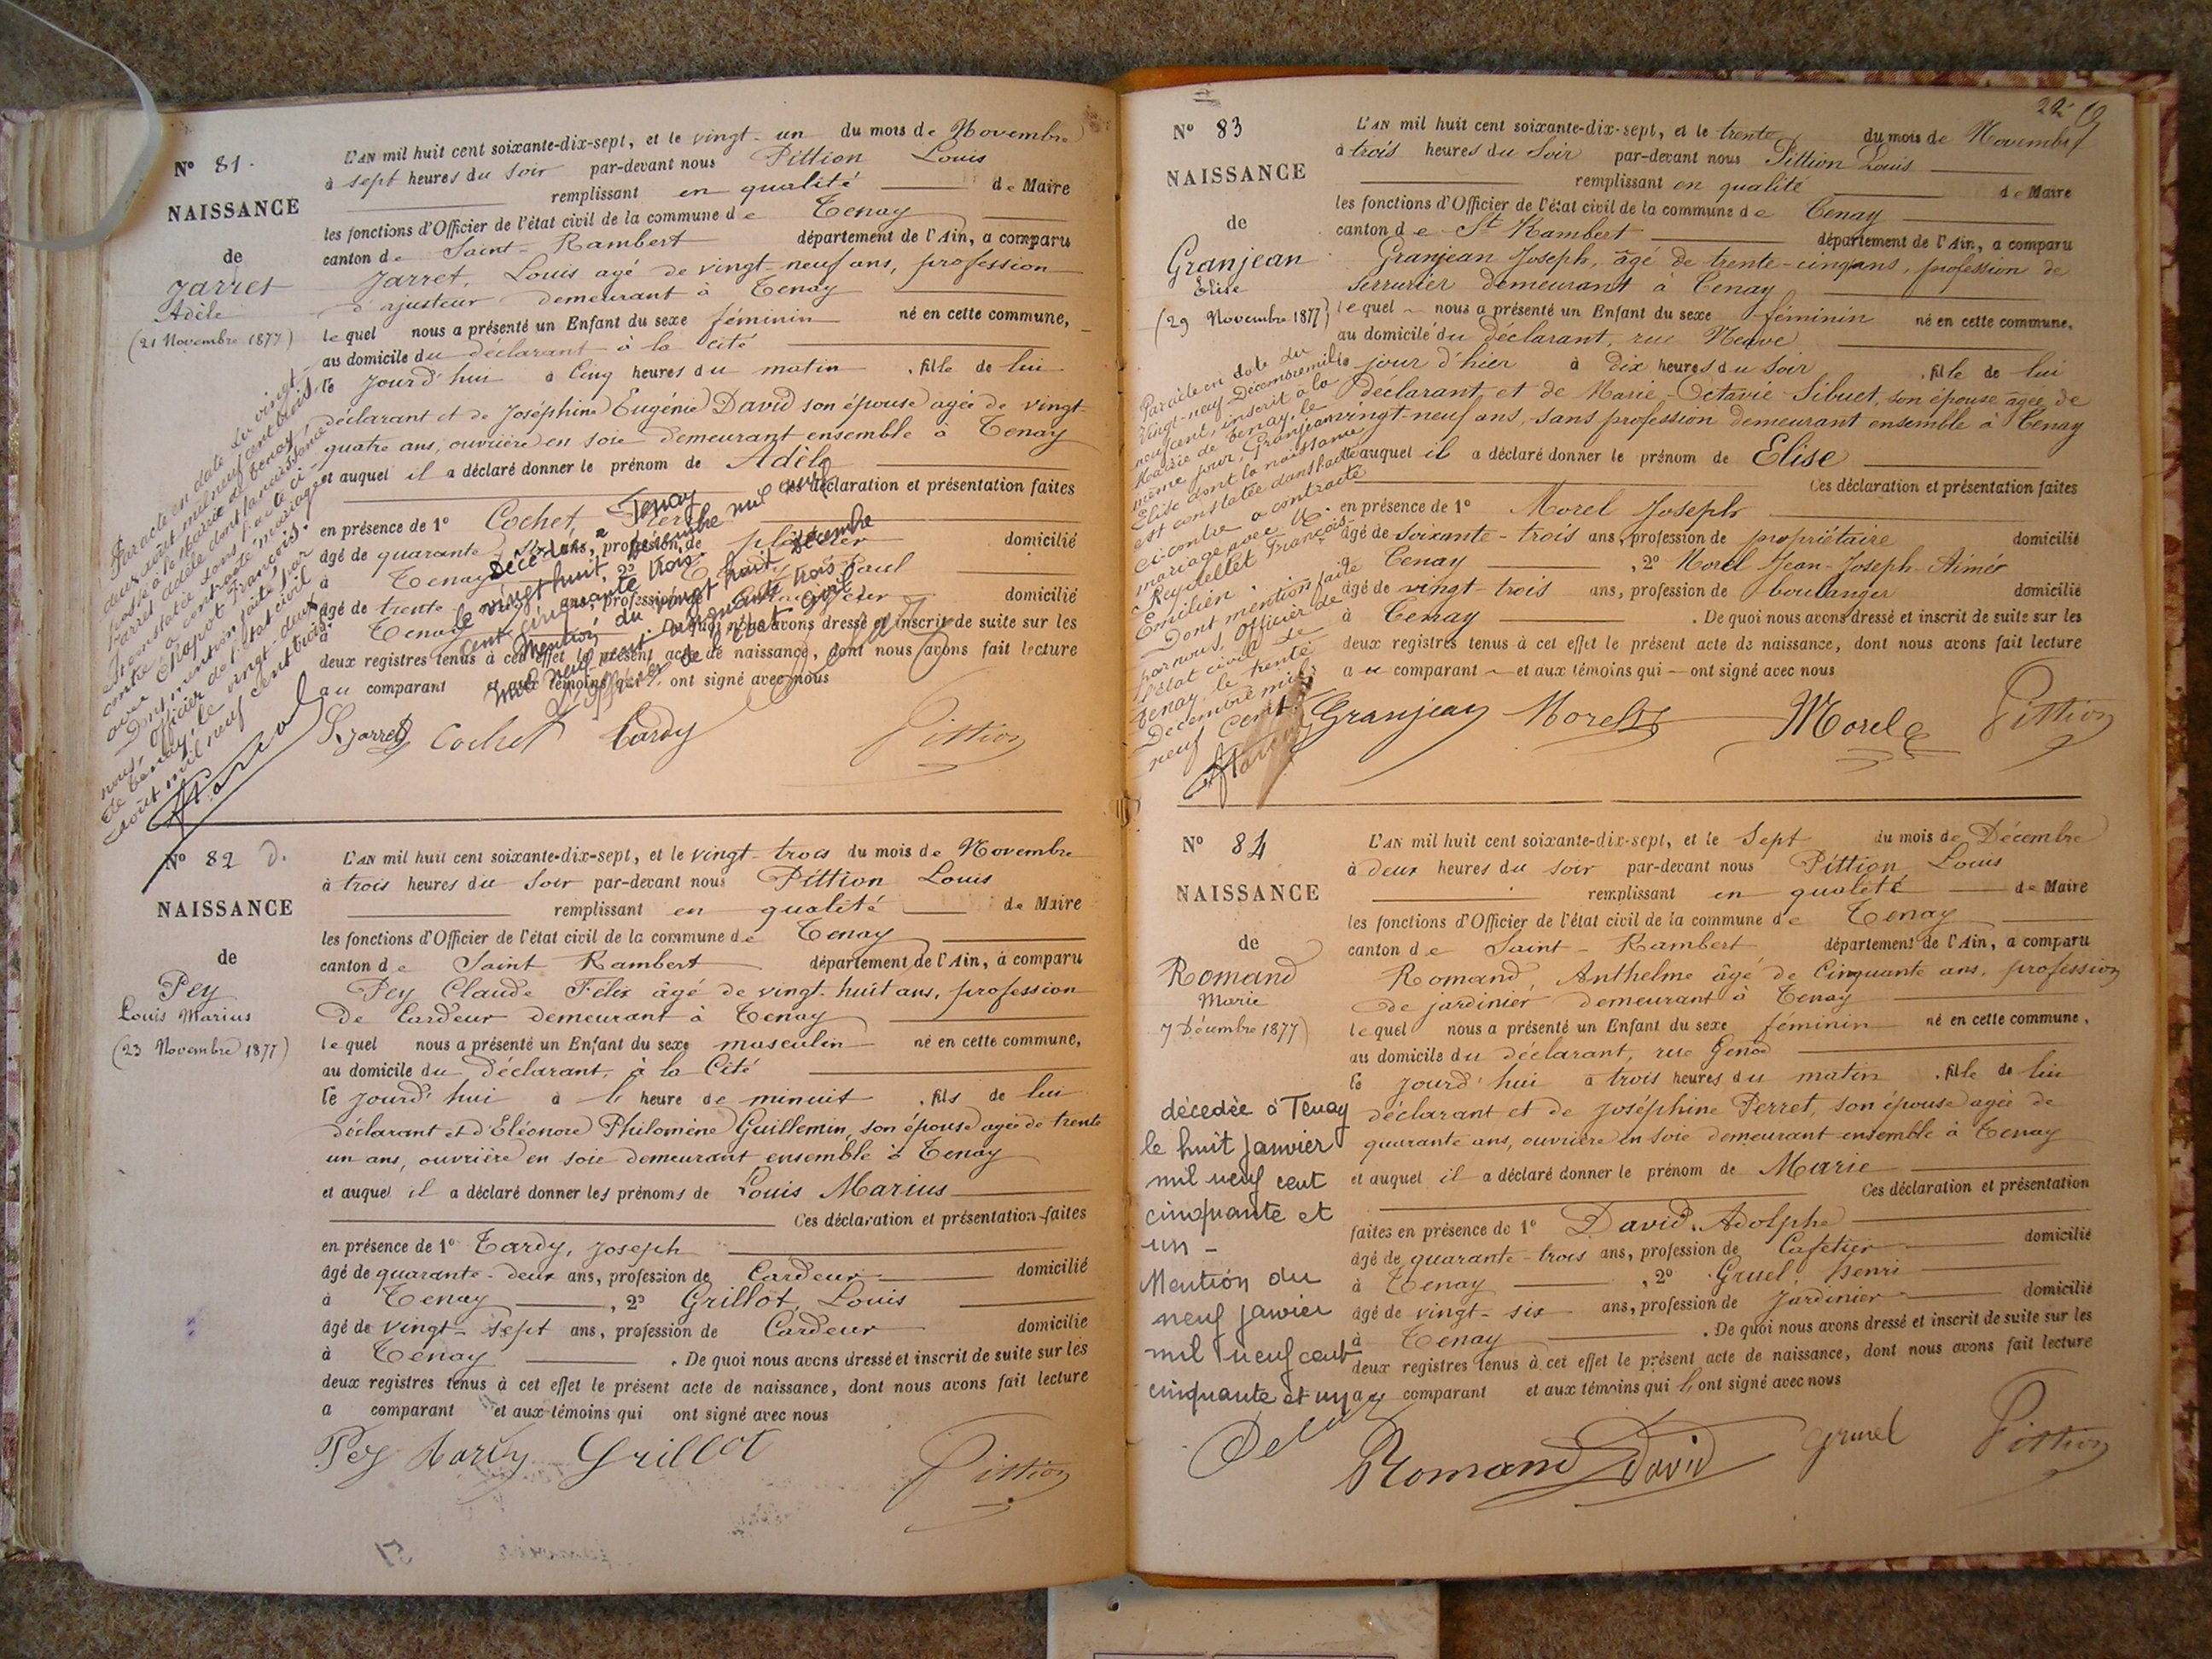 N° 81.
NAISSANCE
de
Jarret
Adèle
(21 Novembre 1877)
L'AN mil huit cent soixante-dix-sept, et le vingt-un du mois de Novembre
à sept heures du soir par-devant nous Pittion Louis
remplissant en qualité de Maire
les fonctions d'Officier de l'état civil de la commune de Tenay
canton de Saint-Rambert département de l'Ain, a comparu
Jarret, Louis agé de vingt-neuf ans, profession
d'ajusteur demeurant à Tenay
lequel nous a présenté un Enfant du sexe féminin né en cette commune,
au domicile du déclarant à la cité
le jourd'hui à cinq heures du matin, fille de lui
déclarant et de Joséphine Eugénie David son épouse agée de vingt-
quatre ans, ouvrière en soie demeurant ensemble à Tenay
et auquel il a déclaré donner le prénom de Adèle
Ces déclaration et présentation faites
en présence de 1° Cochet,
âgé de quarante ans, profession de plâtrier domicilié
à Tenay, 2° Paul
âgé de trente ans, profession domicilié
à Tenay. De quoi nous avons dressé et inscrit de suite sur les
deux registres tenus à cet effet le présent acte de naissance, dont nous avons fait lecture
au comparant et aux témoins qui ont signé avec nous
L. Jarret Cochet Tardy Pittion
Par acte en date du vingt
deux août mil neuf cent trois,
à la Mairie de Tenay,
Jarret Adèle dont la naissance
est constatée dans l'acte ci-
contre a contracté mariage
avec Chapot François.
Dont mention faite par
nous, Officier de l'état civil
de Tenay, le vingt-deux
août mil neuf cent trois.
Décédée à Tenay
le vingt huit décembre mil neuf
cent cinquante trois.
Mention du vingt huit décembre
mil neuf cent cinquante trois
L'officier de l'état civil
N° 82 D.
NAISSANCE
de
Pey
Louis Marius
(23 Novembre 1877)
L'AN mil huit cent soixante-dix-sept, et le vingt-trois du mois de Novembre
à trois heures du soir par-devant nous Pittion Louis
remplissant en qualité de Maire
les fonctions d'Officier de l'état civil de la commune de Tenay
canton de Saint Rambert département de l'Ain, a comparu
Pey Claude Félix âgé de vingt-huit ans, profession
de Cardeur demeurant à Tenay
lequel nous a présenté un Enfant du sexe masculin né en cette commune,
au domicile du déclarant, à la Cité
le jourd'hui à l'heure de minuit, fils de lui
déclarant et d'Eléonore Philomène Guillemin, son épouse agée de trente
un ans, ouvrière en soie demeurant ensemble à Tenay
et auquel il a déclaré donner les prénoms de Louis Marius
Ces déclaration et présentation faites
en présence de 1° Tardy, Joseph
âgé de quarante-deux ans, profession de Cardeur domicilié
à Tenay, 2° Grillot, Louis
âgé de vingt-sept ans, profession de Cardeur domicilié
à Tenay. De quoi nous avons dressé et inscrit de suite sur les
deux registres tenus à cet effet le présent acte de naissance, dont nous avons fait lecture
a comparant et aux témoins qui ont signé avec nous
Pey Tardy Grillot
Pittion
N° 83
NAISSANCE
de
Granjean
Elise
(29 Novembre 1877)
L'AN mil huit cent soixante-dix-sept, et le trente du mois de Novembre
à trois heures du soir par-devant nous Pittion Louis
remplissant en qualité de Maire
les fonctions d'Officier de l'état civil de la commune de Tenay
canton de St Rambert département de l'Ain, a comparu
Granjean Joseph, âgé de trente-cinq ans, profession de
Serrurier demeurant à Tenay
lequel nous a présenté un Enfant du sexe féminin né en cette commune,
au domicile du déclarant, rue Neuve
le jour d'hier à dix heures du soir, fille de lui
déclarant et de Marie-Octavie Sibuet, son épouse agée de
vingt-neuf ans, sans profession demeurant ensemble à Tenay
et auquel il a déclaré donner le prénom de Elise
Ces déclaration et présentation faites
en présence de 1° Morel Joseph
âgé de soixante-trois ans, profession de propriétaire domicilié
à Tenay, 2° Morel Jean-Joseph-Aimé
âgé de vingt-trois ans, profession de boulanger domicilié
à Tenay. De quoi nous avons dressé et inscrit de suite sur les
deux registres tenus à cet effet le présent acte de naissance, dont nous avons fait lecture
au comparant et aux témoins qui ont signé avec nous
Granjean Morel Morel Pittion
Par acte en date du
vingt-neuf Décembre mil
neuf cent, inscrit à la
Mairie de Tenay, le
même jour, Granjean
Elise dont la naissance
est constatée dans l'acte
ci-contre a contracté
mariage avec M.
Reydellet François
Emilien.
Dont mention faite
par nous, Officier de
l'état civil de
Tenay, le trente
Décembre mil
neuf cent.
N° 84
NAISSANCE
de
Romand
Marie
7 Décembre 1877)
L'AN mil huit cent soixante-dix-sept, et le Sept du mois de Décembre
à deux heures du soir par-devant nous Pittion Louis
remplissant en qualité de Maire
les fonctions d'Officier de l'état civil de la commune de Tenay
canton de Saint-Rambert département de l'Ain, a comparu
Romand, Anthelme âgé de Cinquante ans, profession
de jardinier demeurant à Tenay
lequel nous a présenté un Enfant du sexe féminin né en cette commune,
au domicile du déclarant, rue Genod
le jourd'hui à trois heures du matin, fille de lui
déclarant et de Joséphine Perret, son épouse agée de
quarante ans, ouvrière en soie demeurant ensemble à Tenay
et auquel il a déclaré donner le prénom de Marie
Ces déclaration et présentation
faites en présence de 1° David, Adolphe
âgé de quarante-trois ans, profession de Cafetier domicilié
à Tenay, 2° Gruel, Henri
âgé de vingt-six ans, profession de Jardinier domicilié
à Tenay. De quoi nous avons dressé et inscrit de suite sur les
deux registres tenus à cet effet le présent acte de naissance, dont nous avons fait lecture
au comparant et aux témoins qui ont signé avec nous
Romand David Gruel Pittion
décedée à Tenay
le huit janvier
mil neuf cent
cinquante et
un -
Mention du
neuf janvier
mil neuf cent
cinquante et un